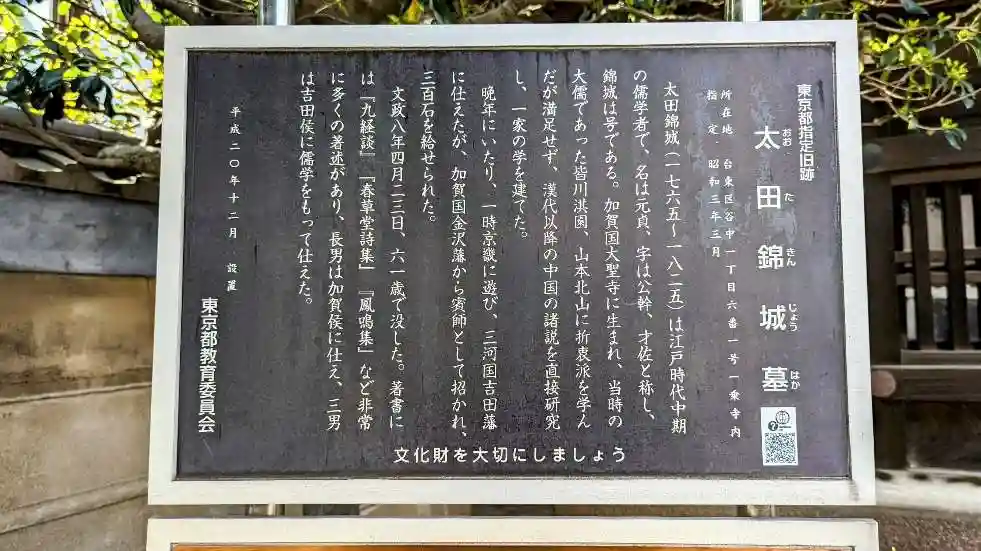 東京都指定旧跡
太田錦城墓
おお た きん じょう はか
所在地 台東区谷中一丁目六番一号一乗寺内
指定 昭和三年三月
太田錦城(一七六五〜一八二五)は江戸時代中期
の儒学者で、名は元貞、字は公幹、才佐と称し、
錦城は号である。加賀国大聖寺に生まれ、当時の
大儒であった皆川淇園、山本北山に折衷派を学ん
だが満足せず、漢代以降の中国の諸説を直接研究
し、一家の学を建てた。
晩年にいたり、一時京畿に遊び、三河国吉田藩
に仕えたが、加賀国金沢藩から賓師として招かれ、
三百石を給せられた。
文政八年四月二三日、六一歳で没した。著書に
は『九経談』『春草堂詩集』『鳳鳴集』など非常
に多くの著述があり、長男は加賀侯に仕え、三男
は吉田侯に儒学をもって仕えた。
平成二〇年十二月 設置
東京都教育委員会
文化財を大切にしましょう